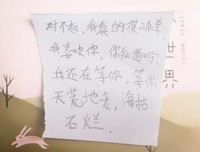 对不起,我真的很迷茫
我喜欢你,你知道吗?
我还在等你,等你
天荒地老,海枯
石烂.
世
界